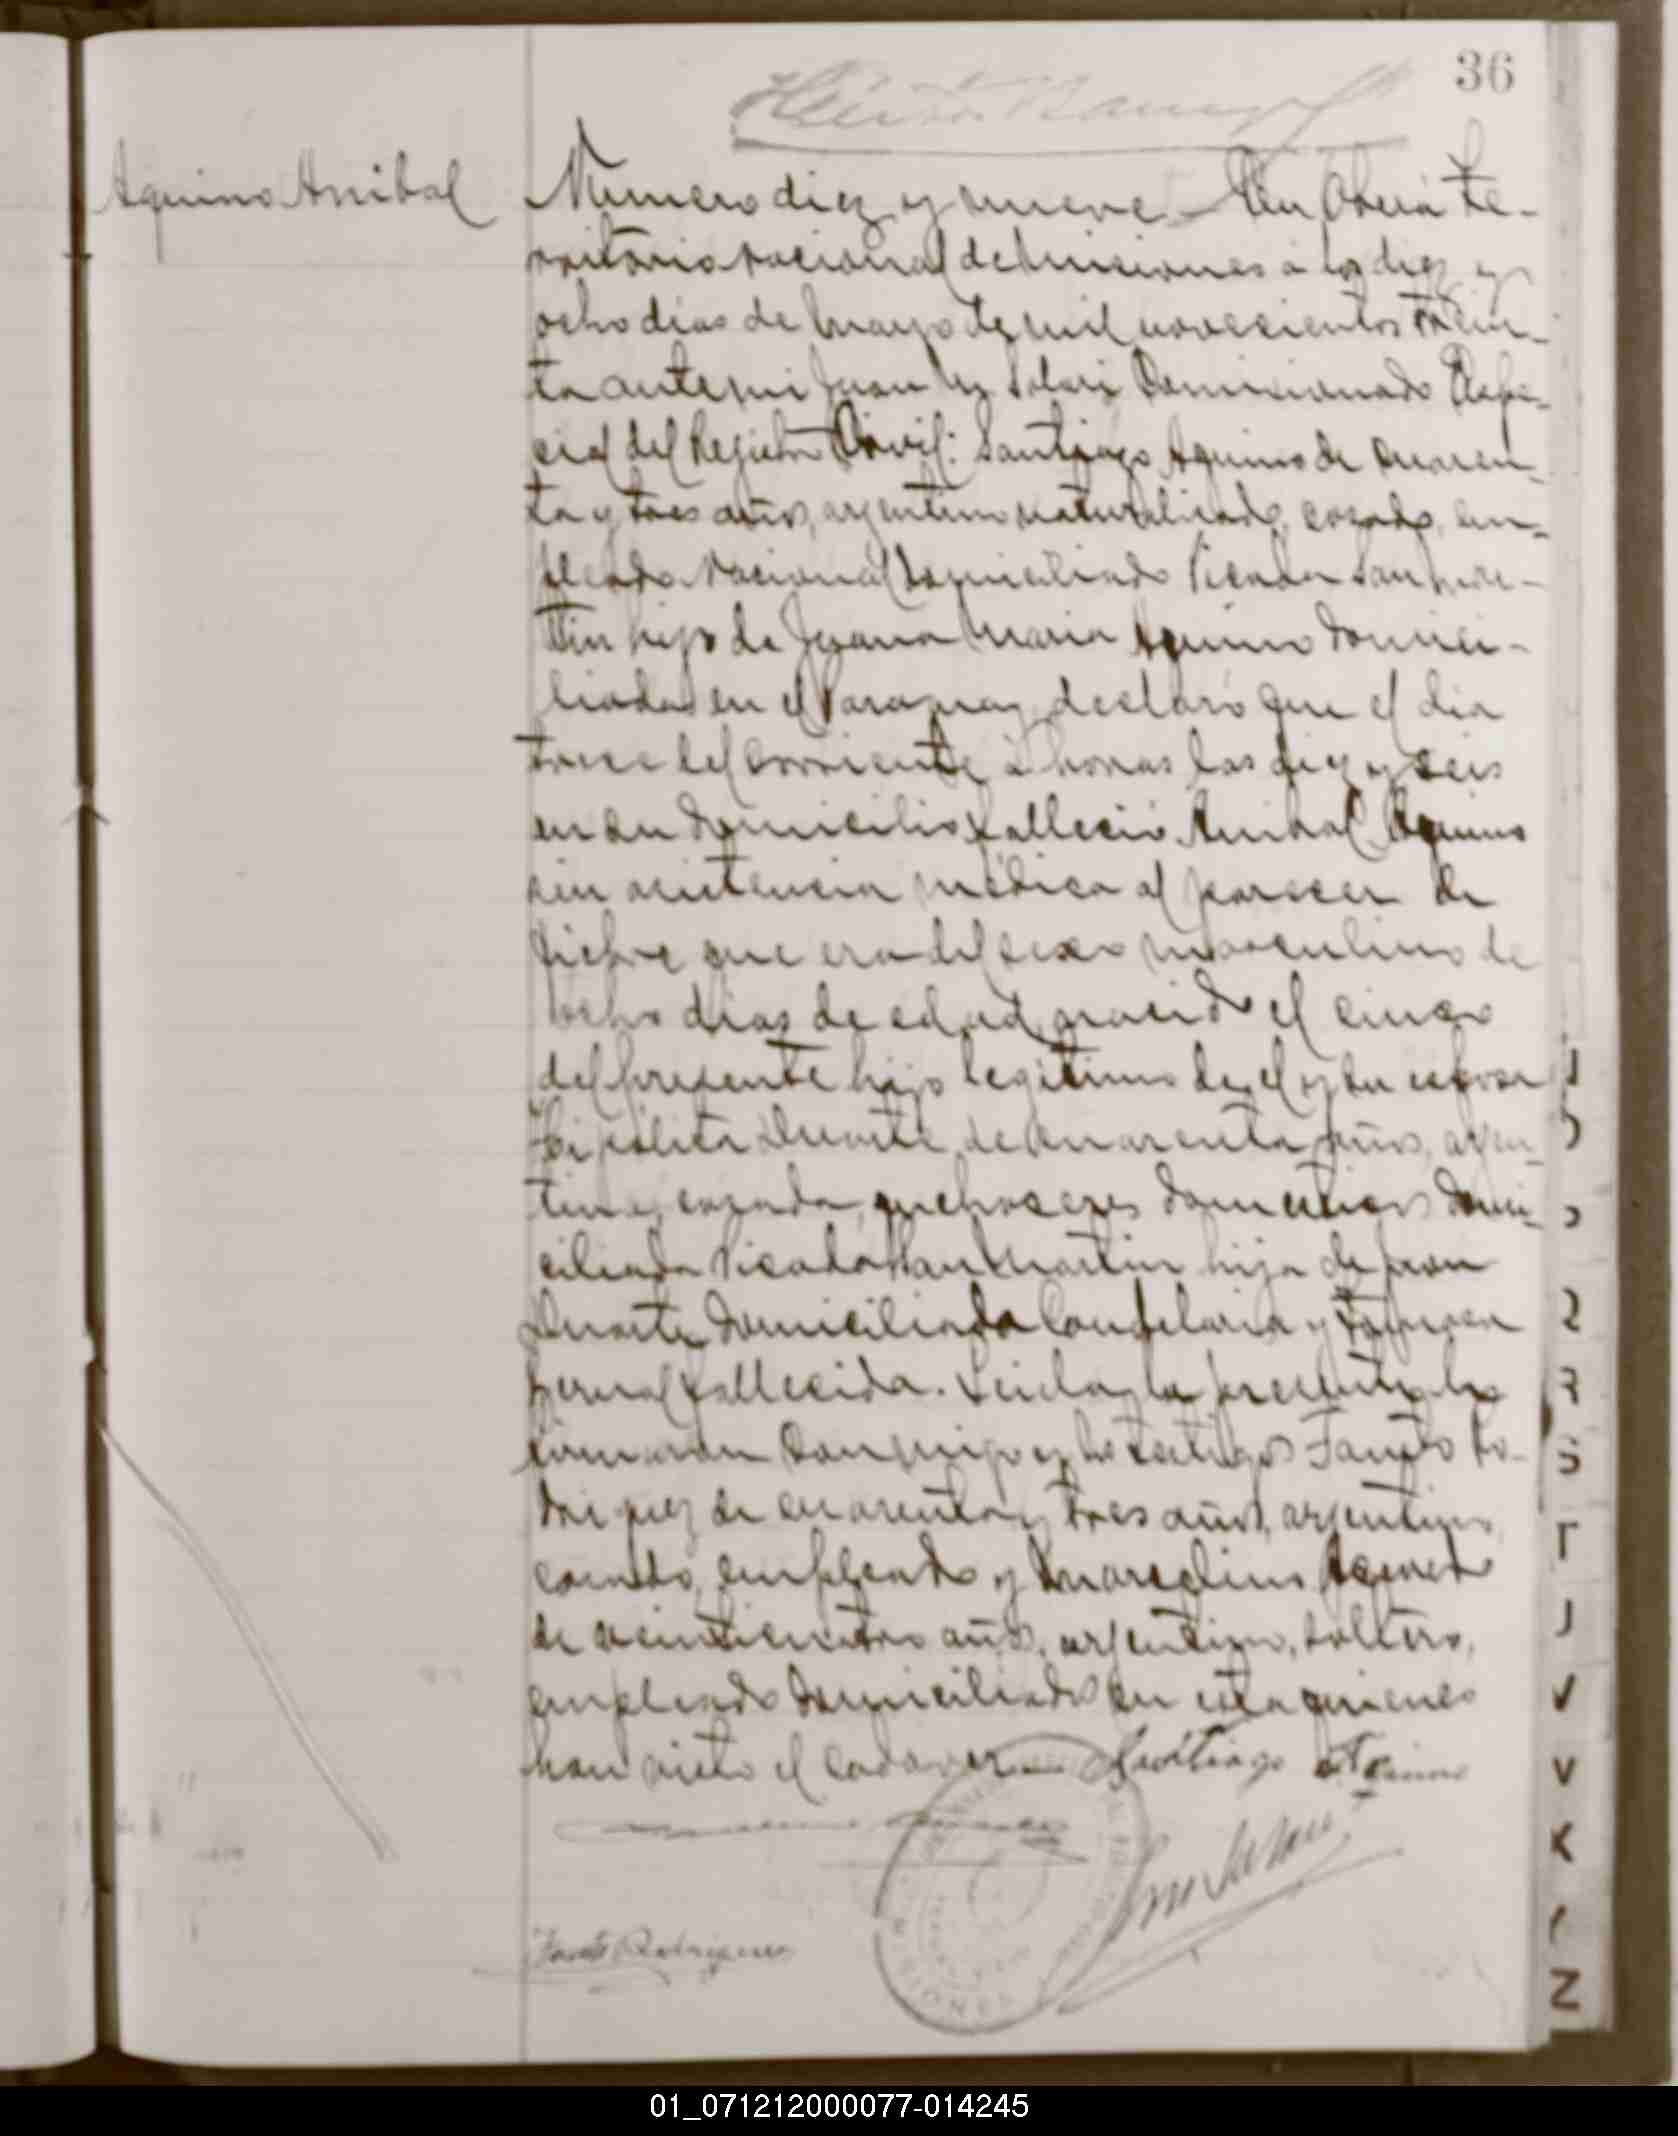 36
Aquino Anibal
Numero diez y nueve - En Oberá Te-
rritorio Nacional de Misiones a los diez y
ocho dias de Mayo de mil novecientos trein-
ta ante mi Juan M Solari Comisionado Espe-
cial del Registro Civil: Santiago Aquino de cuaren-
ta y tres años, argentino naturalizado, casado, em-
pleado Nacional domiciliado Picada San Mar-
tin hijo de Juana Maria Aquino domici-
liada en el Paraguay, declaró que el dia
trece del corriente a horas las diez y seis
en su domicilio falleció Anibal Aquino
sin asistencia médica al parecer de
fiebre que era del sexo masculino de
ocho dias de edad nacido el cinco
del presente hijo legitimo de el y su esposa
Hipólita Duarte, de cuarenta años, argen-
tina, casada, quehaceres domesticos domi-
ciliada Picada San Martin hija de Juan
Duarte domiciliado Candelaria y
Bernal fallecida. Leida la presente la
firmaron conmigo y los testigos Fausto Ro-
driguez de cuarenta y tres años, argentino,
casado, empleado y Marcelino Acevedo
de veinticuatro años, argentino, soltero,
empleado domiciliados en esta quienes
han visto el cadaver Santiago Aquino
Fausto Rodriguez
MISIONES
J
V
V
K
Z
01_071212000077-014245